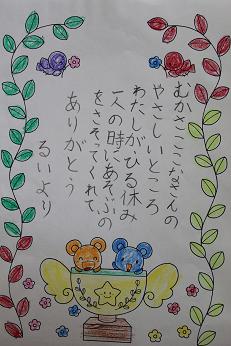 むかさここなさんの
やさしいところ
わたしがひる休み
一人の時にあそぶの
をさそってくれて、
ありがとう
るいより